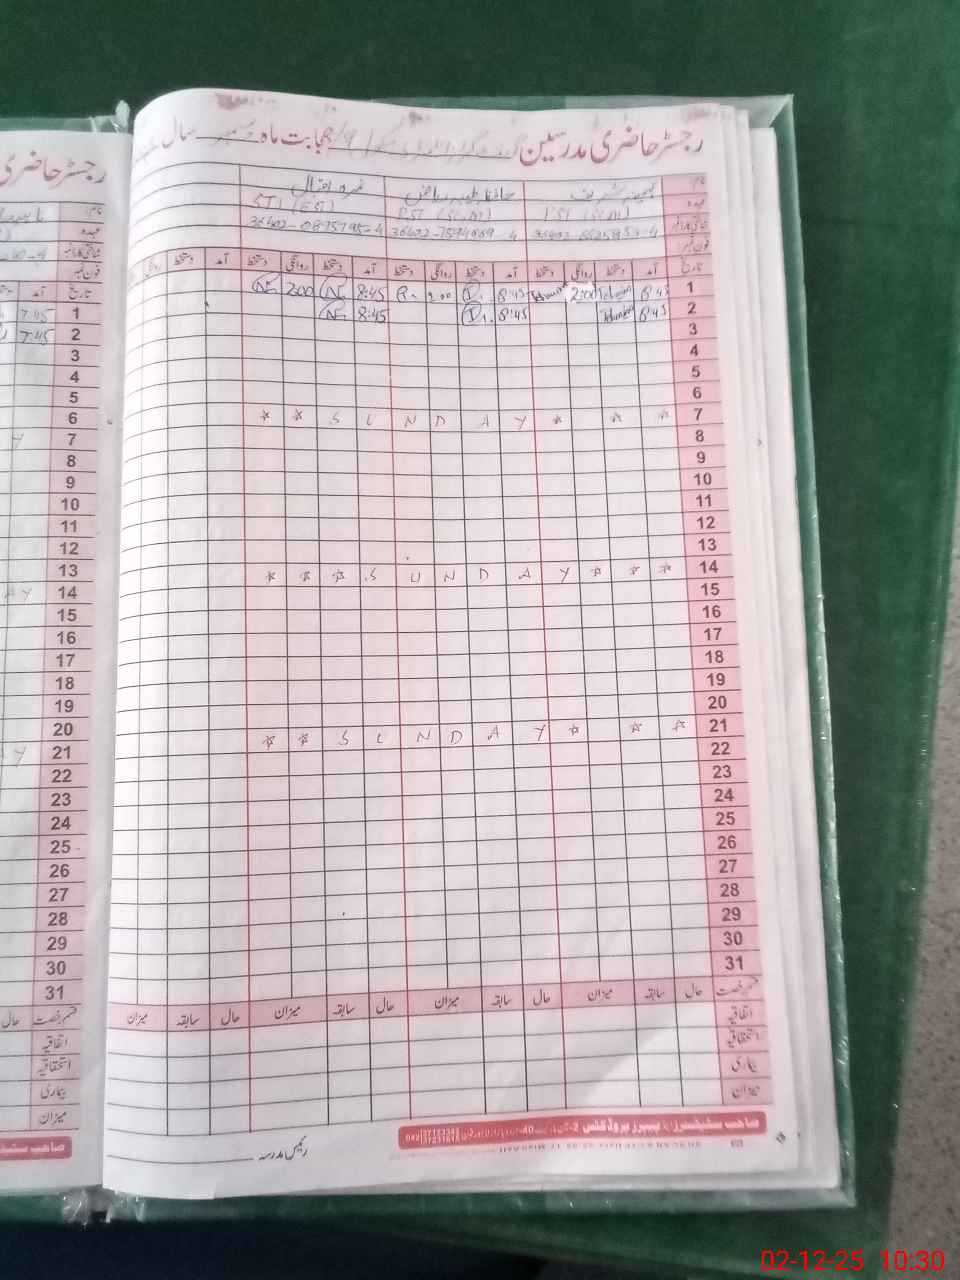 رجسٹر حاضری مدرسین بابت ماہ دسمبر سال
رجسٹر حاضری
نام
عہدہ
شناختی کارڈ نمبر
فون نمبر
تہمینہ شریف حافظ طیبہ ریاض نمرہ اقبال
PST (Sci,M) EST (Sci,M) STI (ESI)
36402-7594669-4 36402-0895795-4
تاریخ آمد دستخط روانگی دستخط آمد دستخط روانگی دستخط آمد دستخط روانگی دستخط آمد دستخط روانگی
1 8:45 2:00 8:45 2:00 8:45 2:00
2 8:45 8:45 8:45
3
4
5
6
7 * * S U N D A Y * * *
8
9
10
11
12
13
14 * * * S U N D A Y * * *
15
16
17
18
19
20
21 * * S U N D A Y * * *
22
23
24
25
26
27
28
29
30
31
قسم رخصت حال سابقہ میزان حال سابقہ میزان حال سابقہ میزان حال سابقہ میزان
اتفاقیہ
استحقاقیہ
بیماری
میزان
رئیس مدرسہ
صاحب سٹیشنرز پیپرز پروڈکٹس
نام
عہدہ
شناختی کارڈ نمبر
فون نمبر
تاریخ آمد
1 7:45
2 7:45
3
4
5
6
7 Y
8
9
10
11
12
13
14 A Y
15
16
17
18
19
20
21 A Y
22
23
24
25
26
27
28
29
30
31
قسم رخصت حال
اتفاقیہ
استحقاقیہ
بیماری
میزان
صاحب سٹیشنرز
02-12-25 10:30